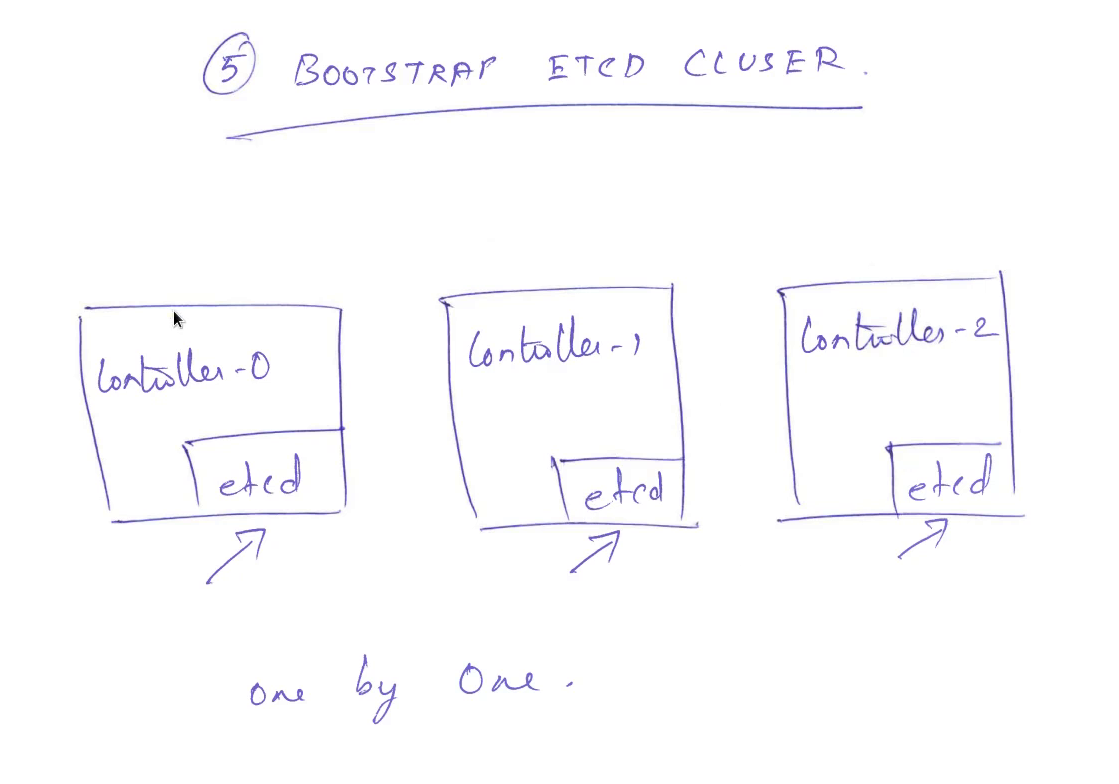 5 BOOTSTRAP ETCD CLUSER.
Controller-0
etcd
Controller-1
etcd
Controller-2
etcd
one by One.